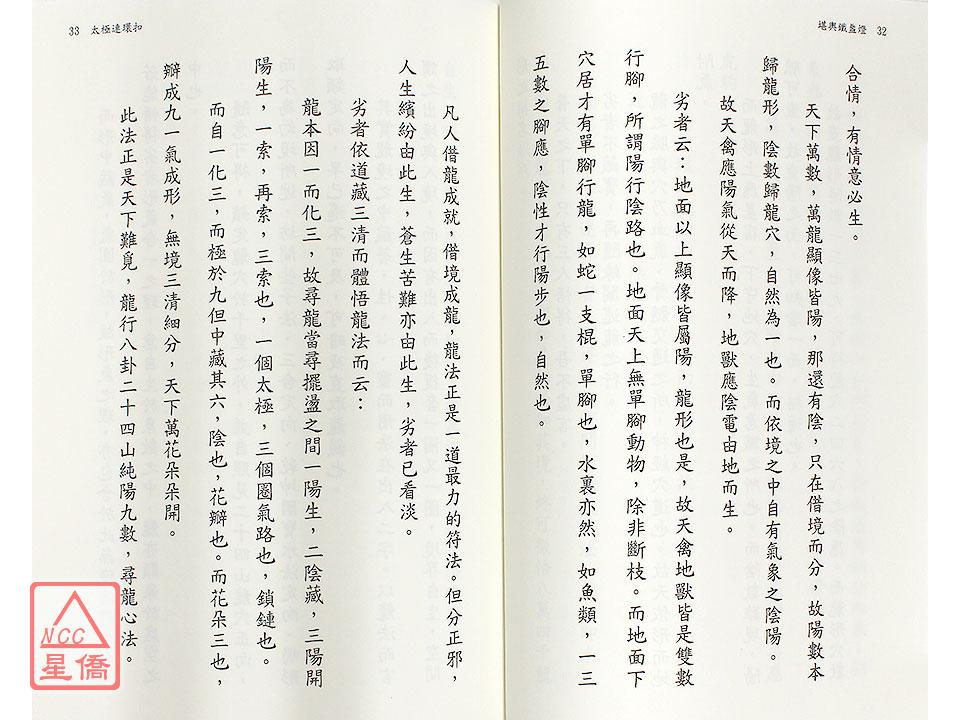 堪輿鐵盤燈 32
合情，有情意必生。
天下萬數，萬龍顯像皆陽，那還有陰，只在借境而分，故陽數本
歸龍形，陰數歸龍穴，自然為一也。而依境之中自有氣象之陰陽。
故天禽應陽氣從天而降，地獸應陰電由地而生。
劣者云：地面以上顯像皆屬陽，龍形也是，故天禽地獸皆是雙數
行腳，所謂陽行陰路也。地面天上無單腳動物，除非斷枝。而地面下
穴居才有單腳行龍，如蛇一支棍，單腳也，水裏亦然，如魚類，一三
五數之腳應，陰性才行陽步也，自然也。
33 太極連環扣
凡人借龍成就，借境成龍，龍法正是一道最力的符法。但分正邪，
人生繽紛由此生，蒼生苦難亦由此生，劣者已看淡。
劣者依道藏三清而體悟龍法而云：
龍本因一而化三，故尋龍當尋擺盪之間一陽生，二陰藏，三陽開
陽生，一索，再索，三索也，一個太極，三個圈氣路也，鎖鏈也。
而自一化三，而極於九但中藏其六，陰也，花瓣也。而花朵三也，
辦成九一氣成形，無境三清細分，天下萬花朵朵開。
此法正是天下難覓，龍行八卦二十四山純陽九數，尋龍心法。
NCC
星僑